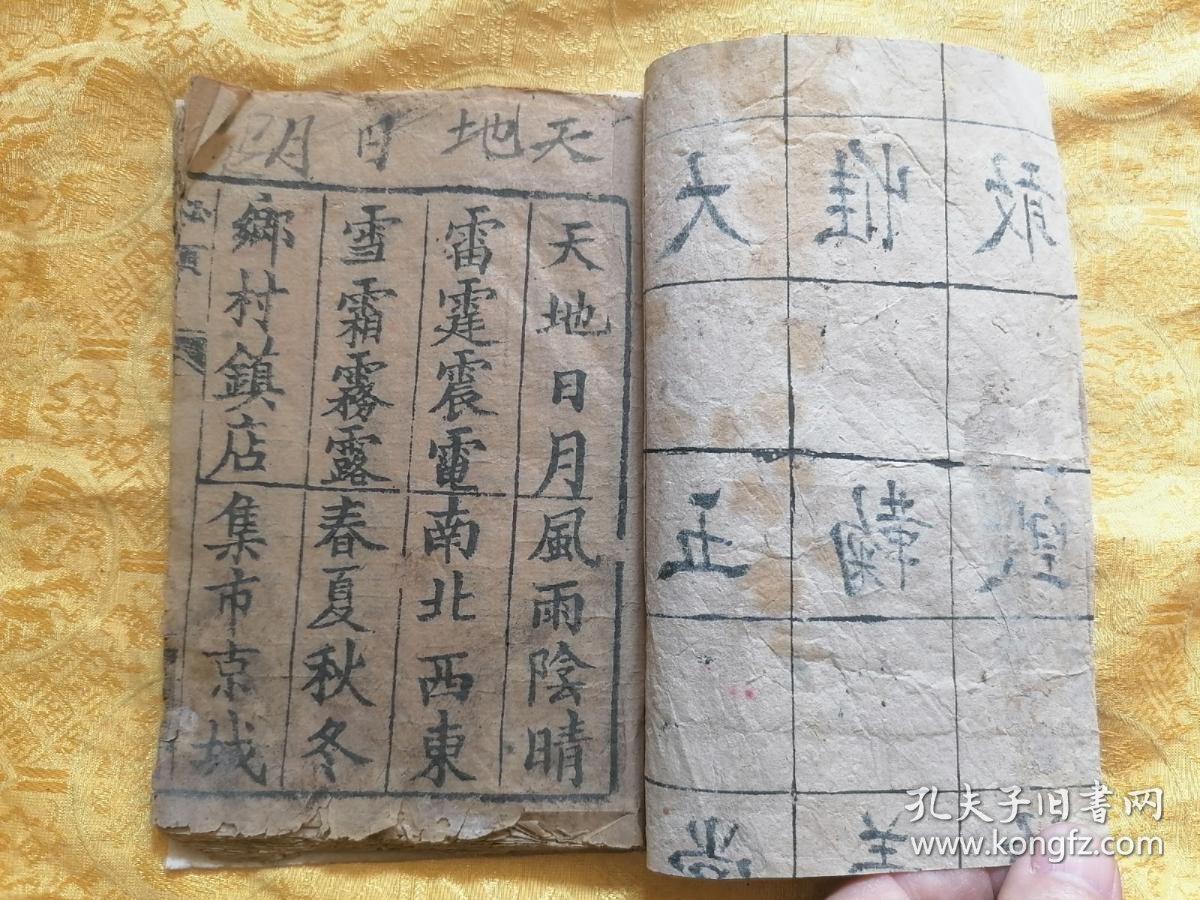 天地日月
天地日月風雨陰晴
雷霆震電南北西東
雪霜霧露春夏秋冬
鄉村鎮店集市京城
大五
惟鞠
敢毀
孔夫子旧書网
www.kongfz.com